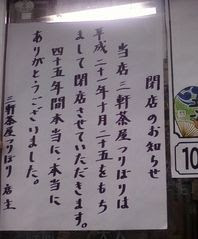 閉店のお知らせ
当店三軒茶屋つりぼりは
平成二十一年十月二十五をもち
まして閉店させていただきます。
四十五年間本当に、本当に
ありがとうございました。
三軒茶屋つりぼり 店主
10